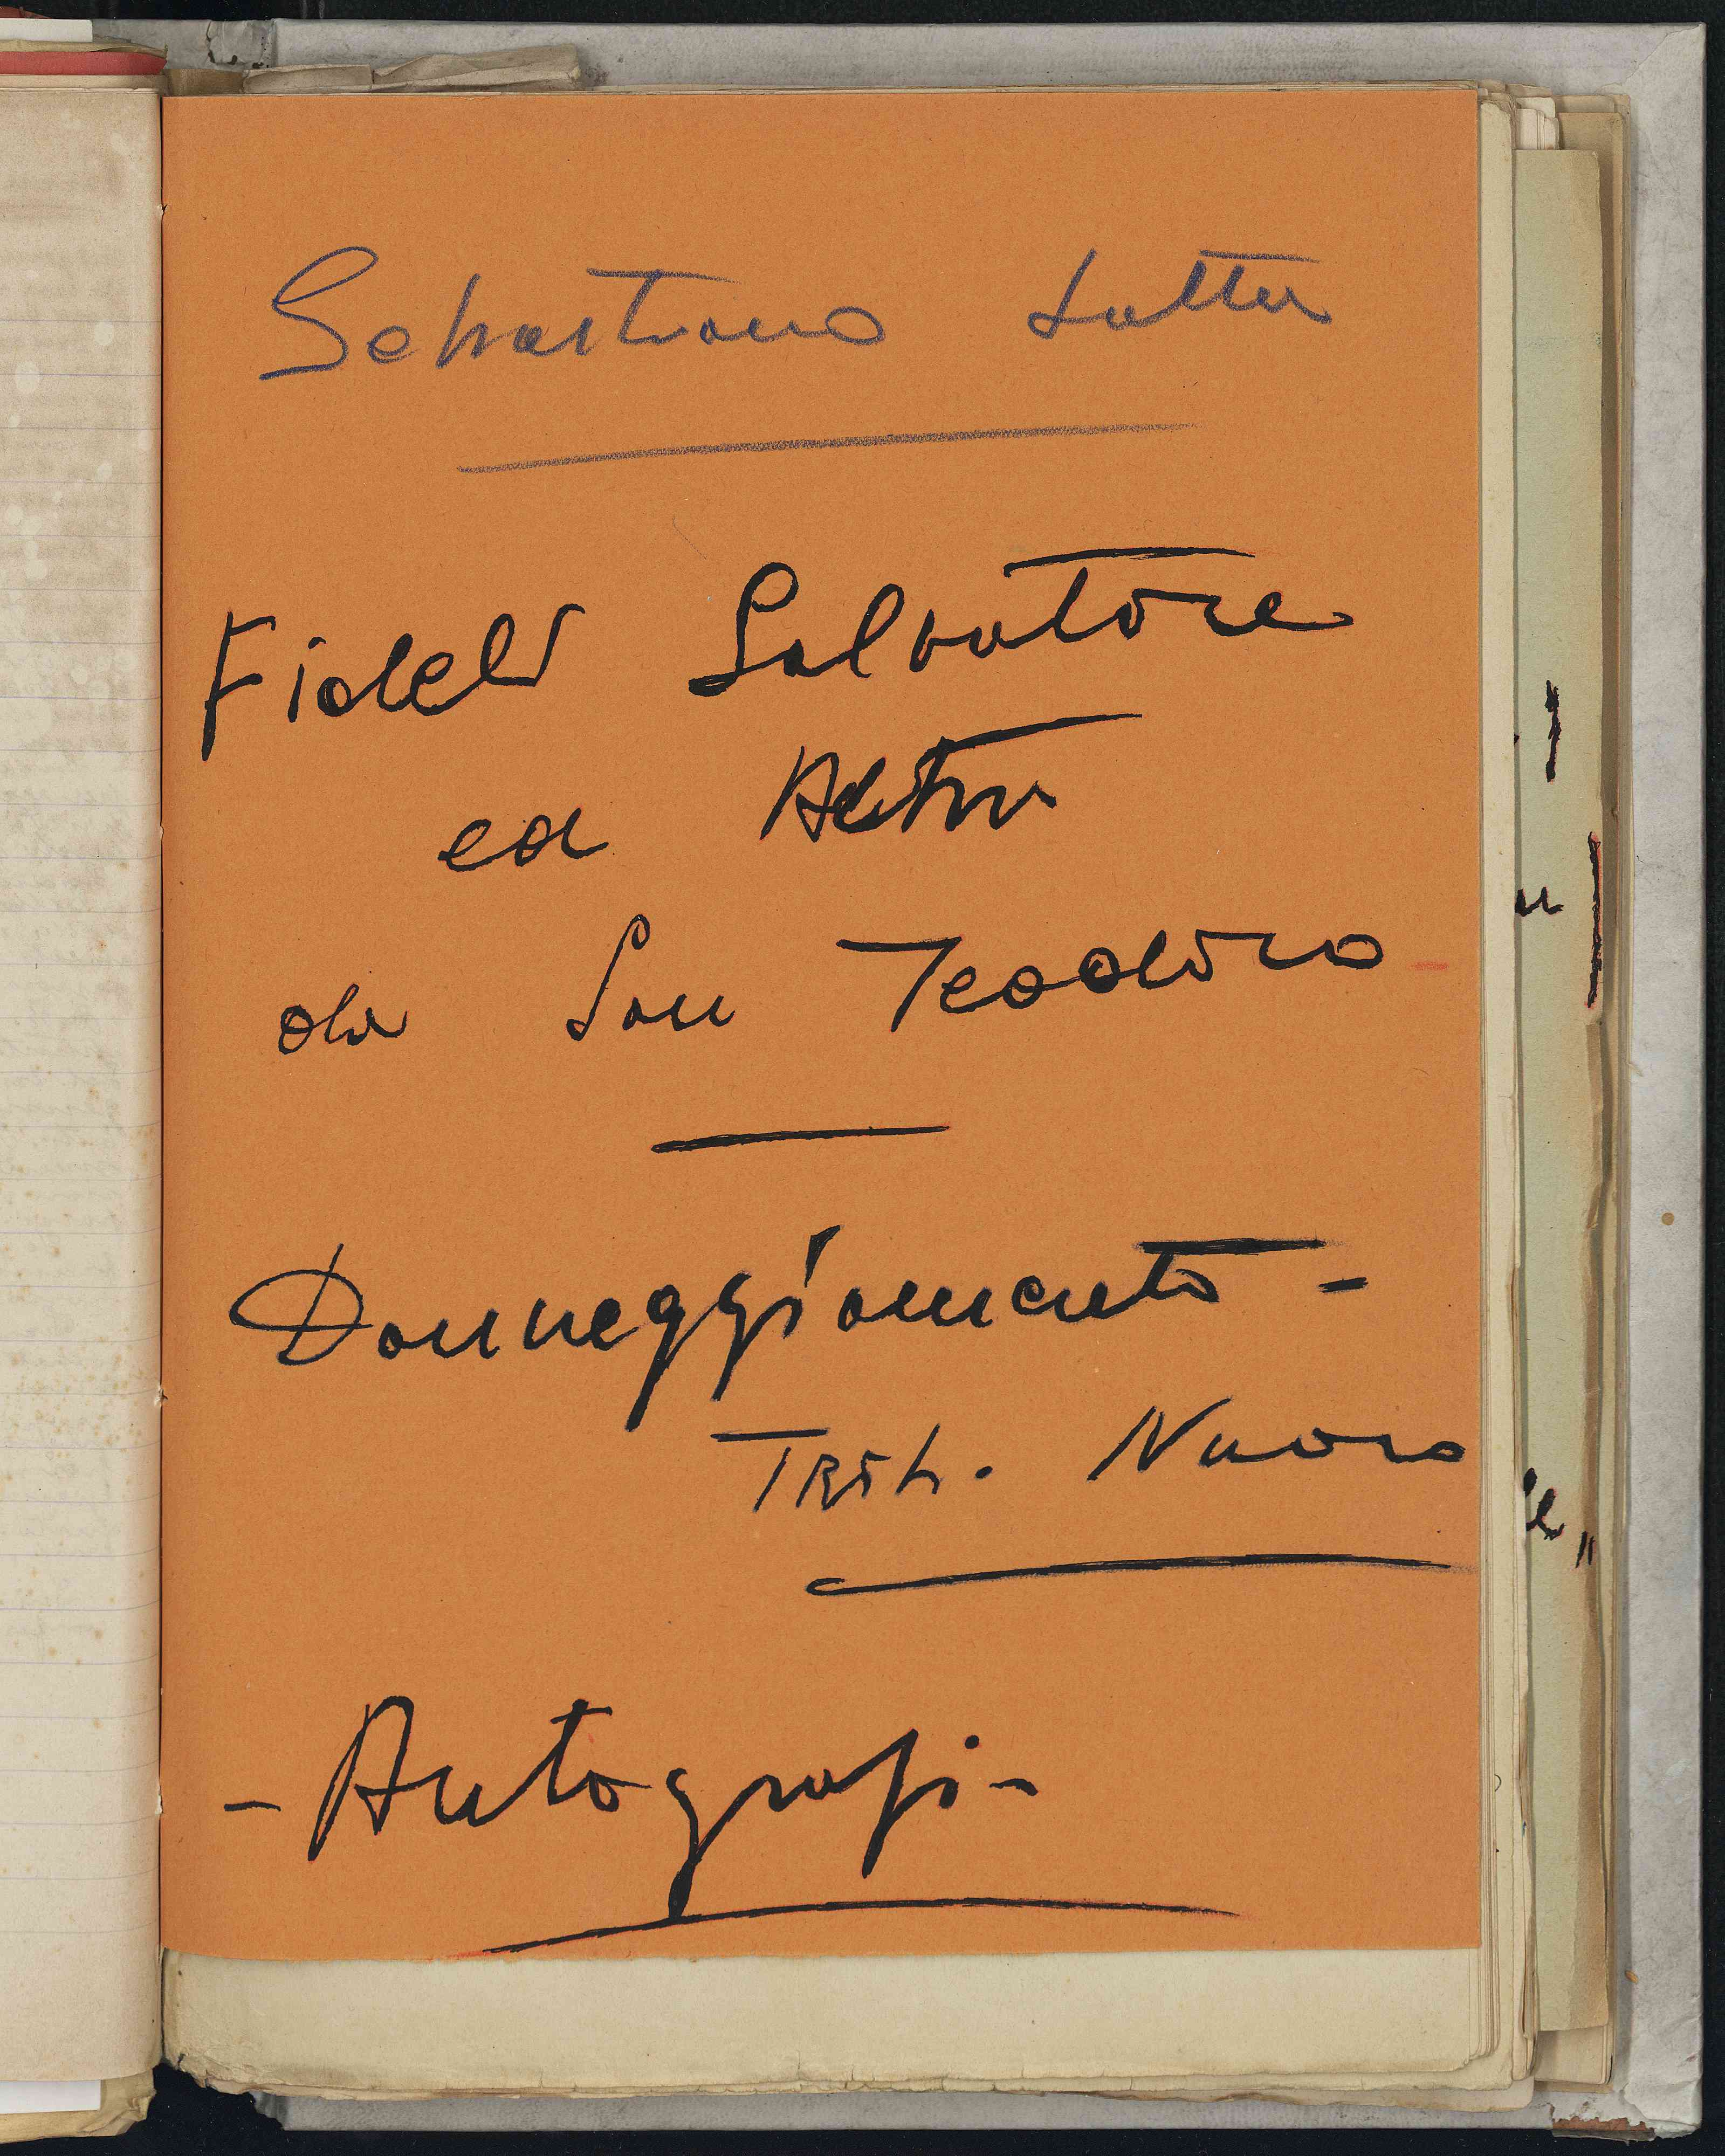 Sebastiano Satta
Fideli Salvatore
ed Altri
da San Teodoro
Danneggiamento -
Trib. Nuoro
- Autografi -